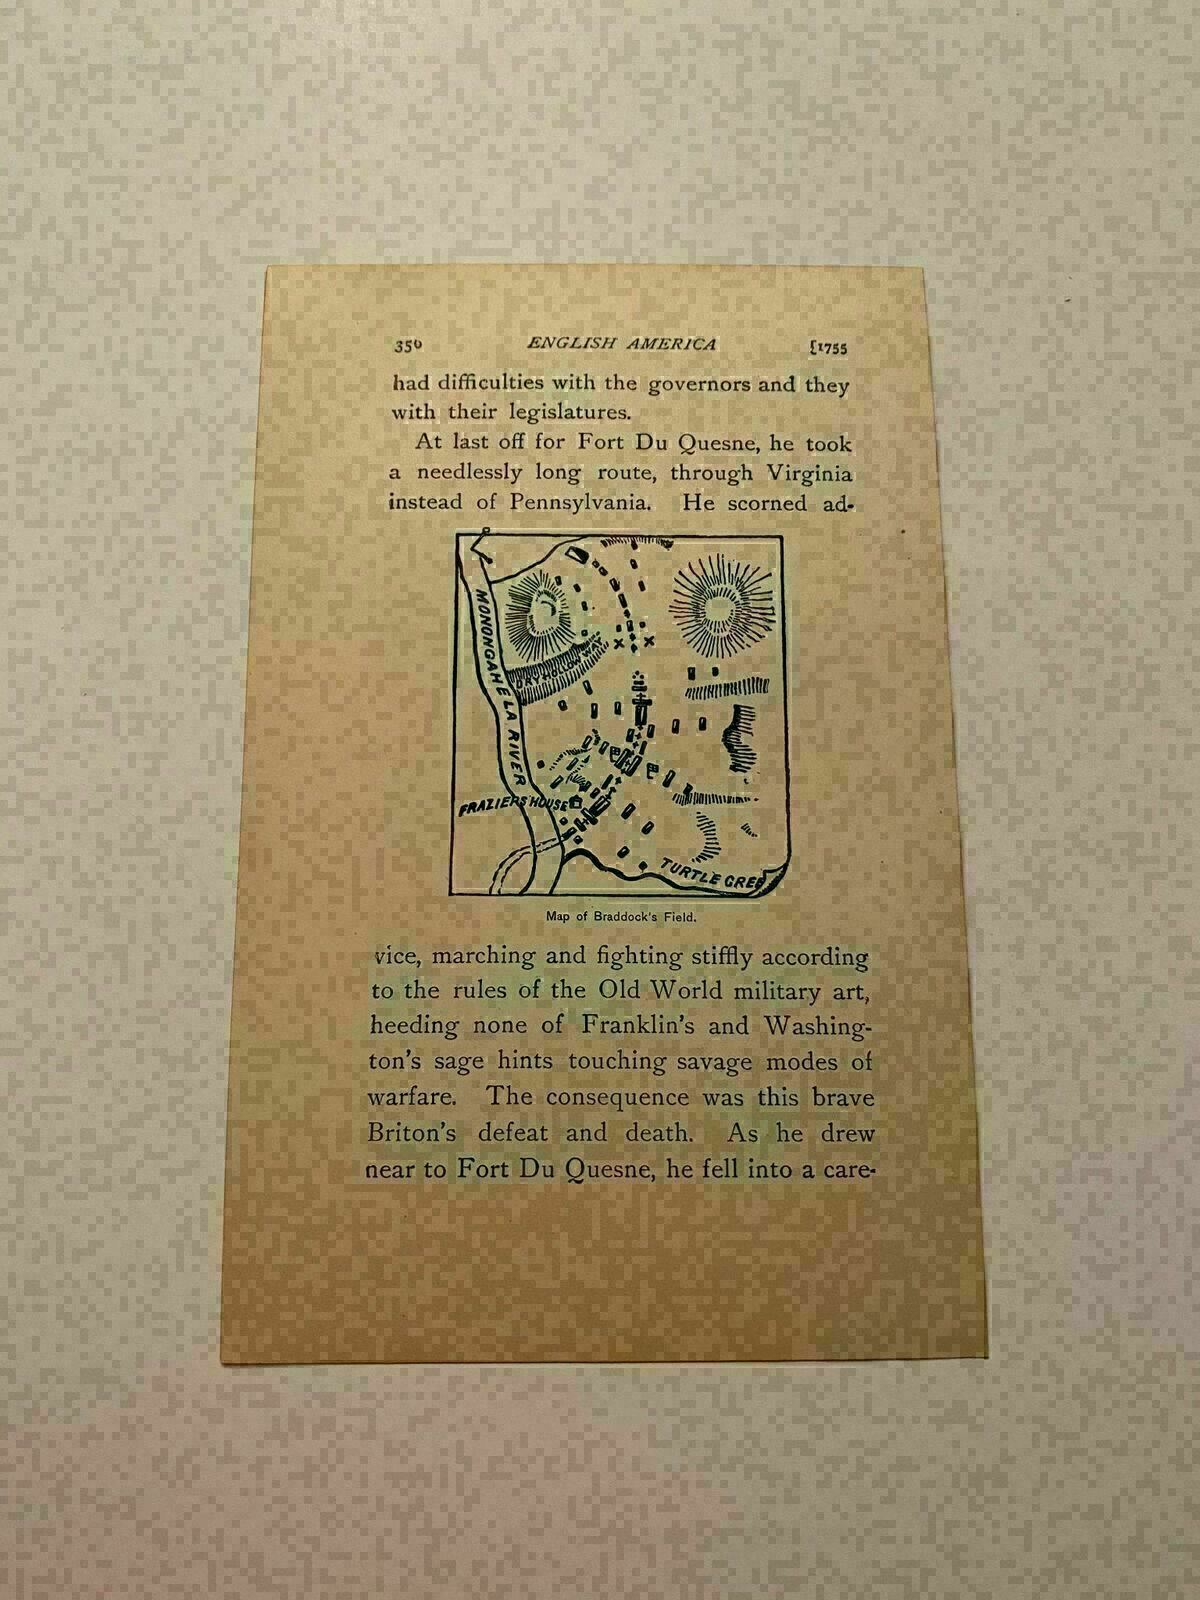 350 ENGLISH AMERICA [1755
had difficulties with the governors and they
with their legislatures.
At last off for Fort Du Quesne, he took
a needlessly long route, through Virginia
instead of Pennsylvania. He scorned ad-
MONONGAHELA RIVER
DRY HOLLOW WAY
FRAZIERS HOUSE
TURTLE CREE
Map of Braddock's Field.
vice, marching and fighting stiffly according
to the rules of the Old World military art,
heeding none of Franklin's and Washing-
ton's sage hints touching savage modes of
warfare. The consequence was this brave
Briton's defeat and death. As he drew
near to Fort Du Quesne, he fell into a care-